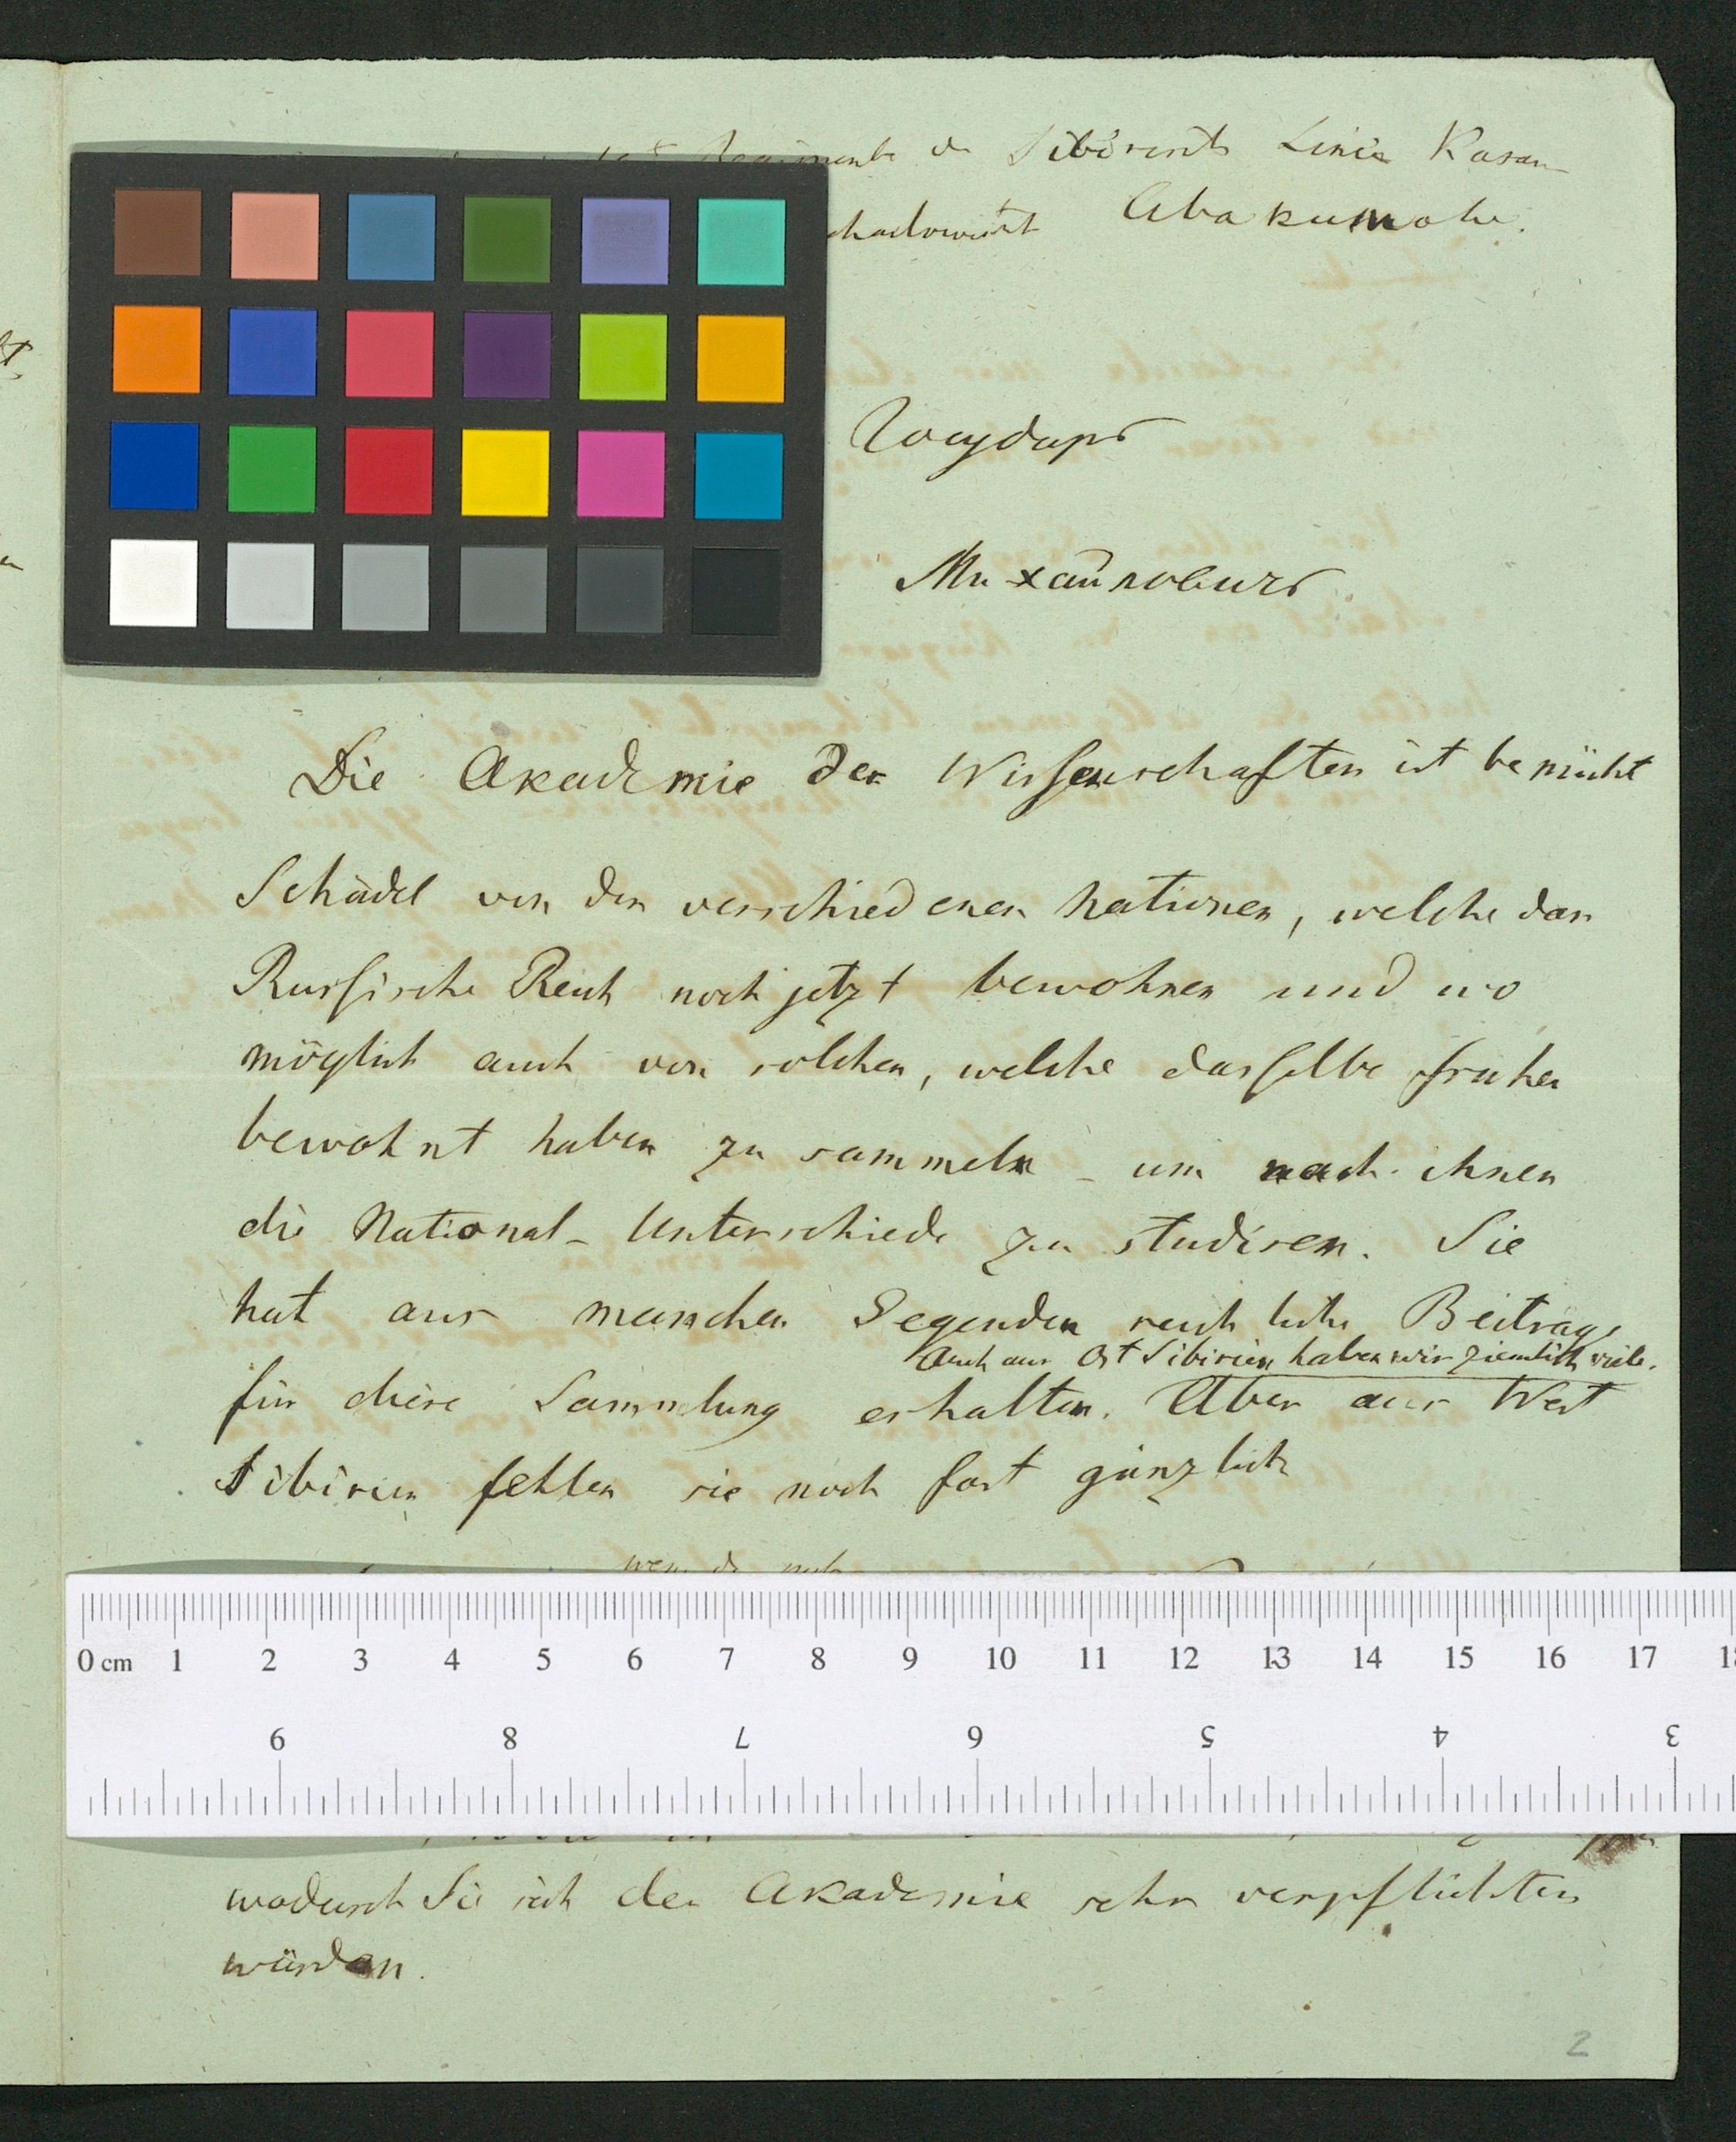 Regimente der Sibirisch Linie Kasan
Abakumohe.
Государь
Михайловичъ
Die Akademie der Wissenschaften ist bemüht
Schädel von den verschiedenen Nationen, welche das
Russische Reich noch jetzt bewohnen und wo
möglich auch von solchen, welche dasselbe früher
bewohnt haben zu sammeln – um nach ihnen
die National-Unterschiede zu studiren. Sie
hat aus manchen Gegenden reichliche Beiträge
Auch aus Ost Sibirien haben wir ziemlich viele.
für diese Sammlung erhalten. Aber aus West
Sibirien fehlen sie noch fast gänzlich
0 cm 1 2 3 4 5 6 7 8 9 10 11 12 13 14 15 16 17 18
9 8 7 6 5 4 3
wodurch Sie sich der Akademie sehr verpflichten
würden.
2